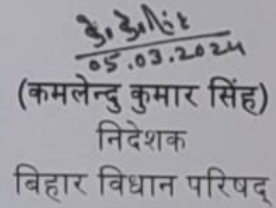 05.03.2024
(कमलेन्दु कुमार सिंह)
निदेशक
बिहार विधान परिषद्